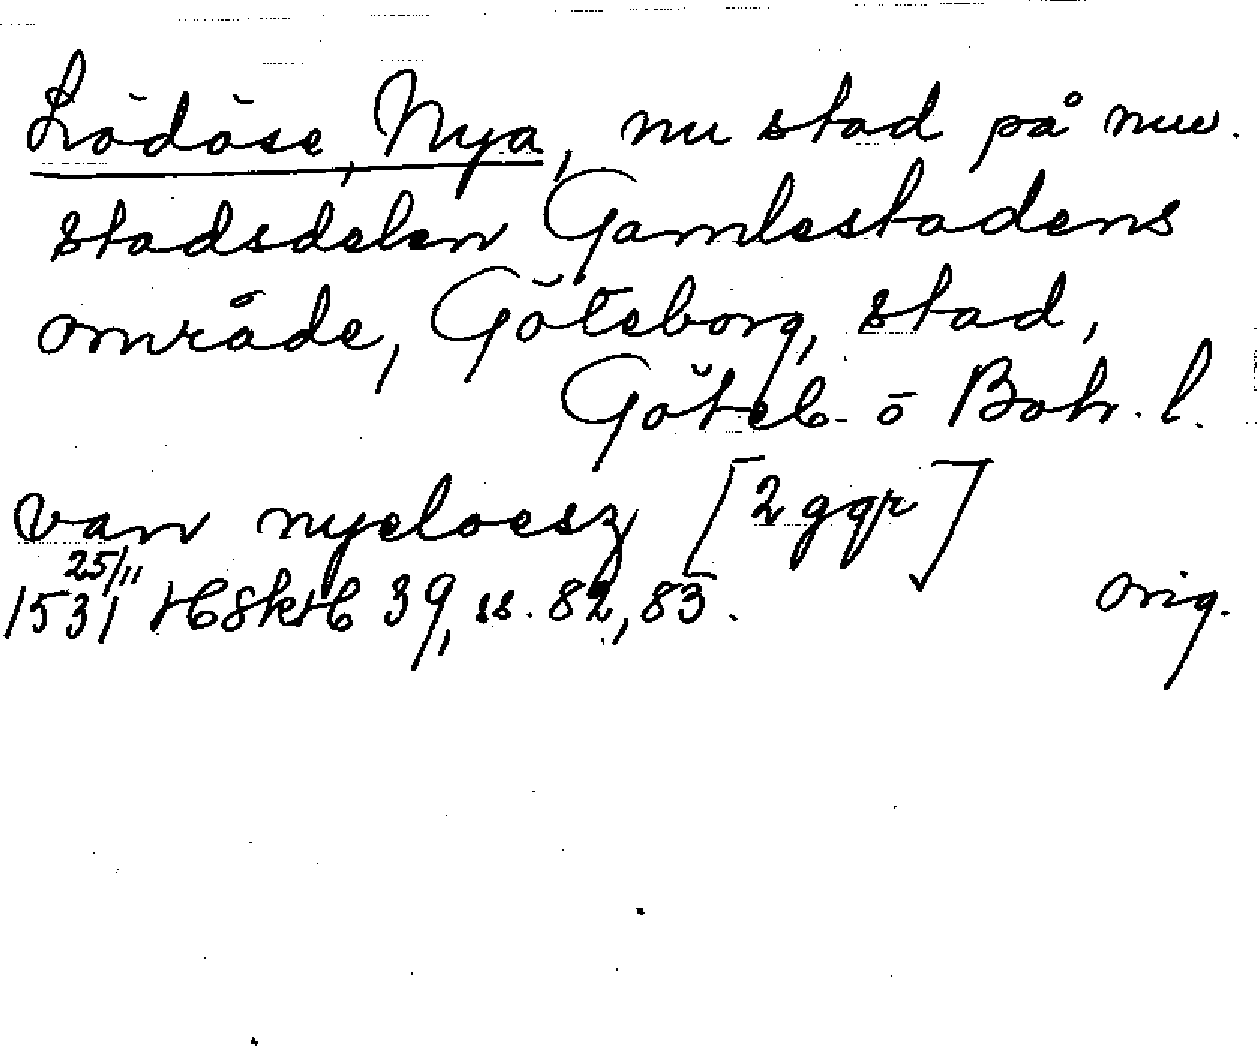 Lödöse, Nya, nu stad på nuv.
stadsdelen Gamlestadens
område, Göteborg, stad,
Göteb. o Boh. l.
van nyeloesz [2 ggr]
25/11
1531 HSkH 39, ss. 82, 83. orig.